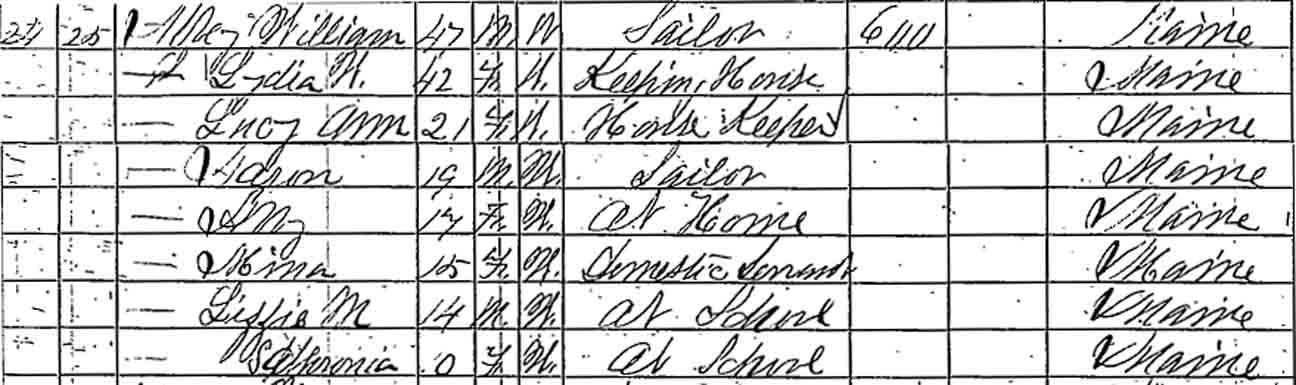 24 25 William 47 M. W Sailor 600 Maine
— Lydia N. 42 F. W. Keepin House Maine
— Lucy Ann 21 F. W. House Keeper Maine
— 19 M. W. Sailor Maine
— 17 F. W. At Home Maine
— Mina 15 F. W. Domestic Servant Maine
— Lizzie M 14 M. W. At School Maine
— 0 F. W. At School Maine